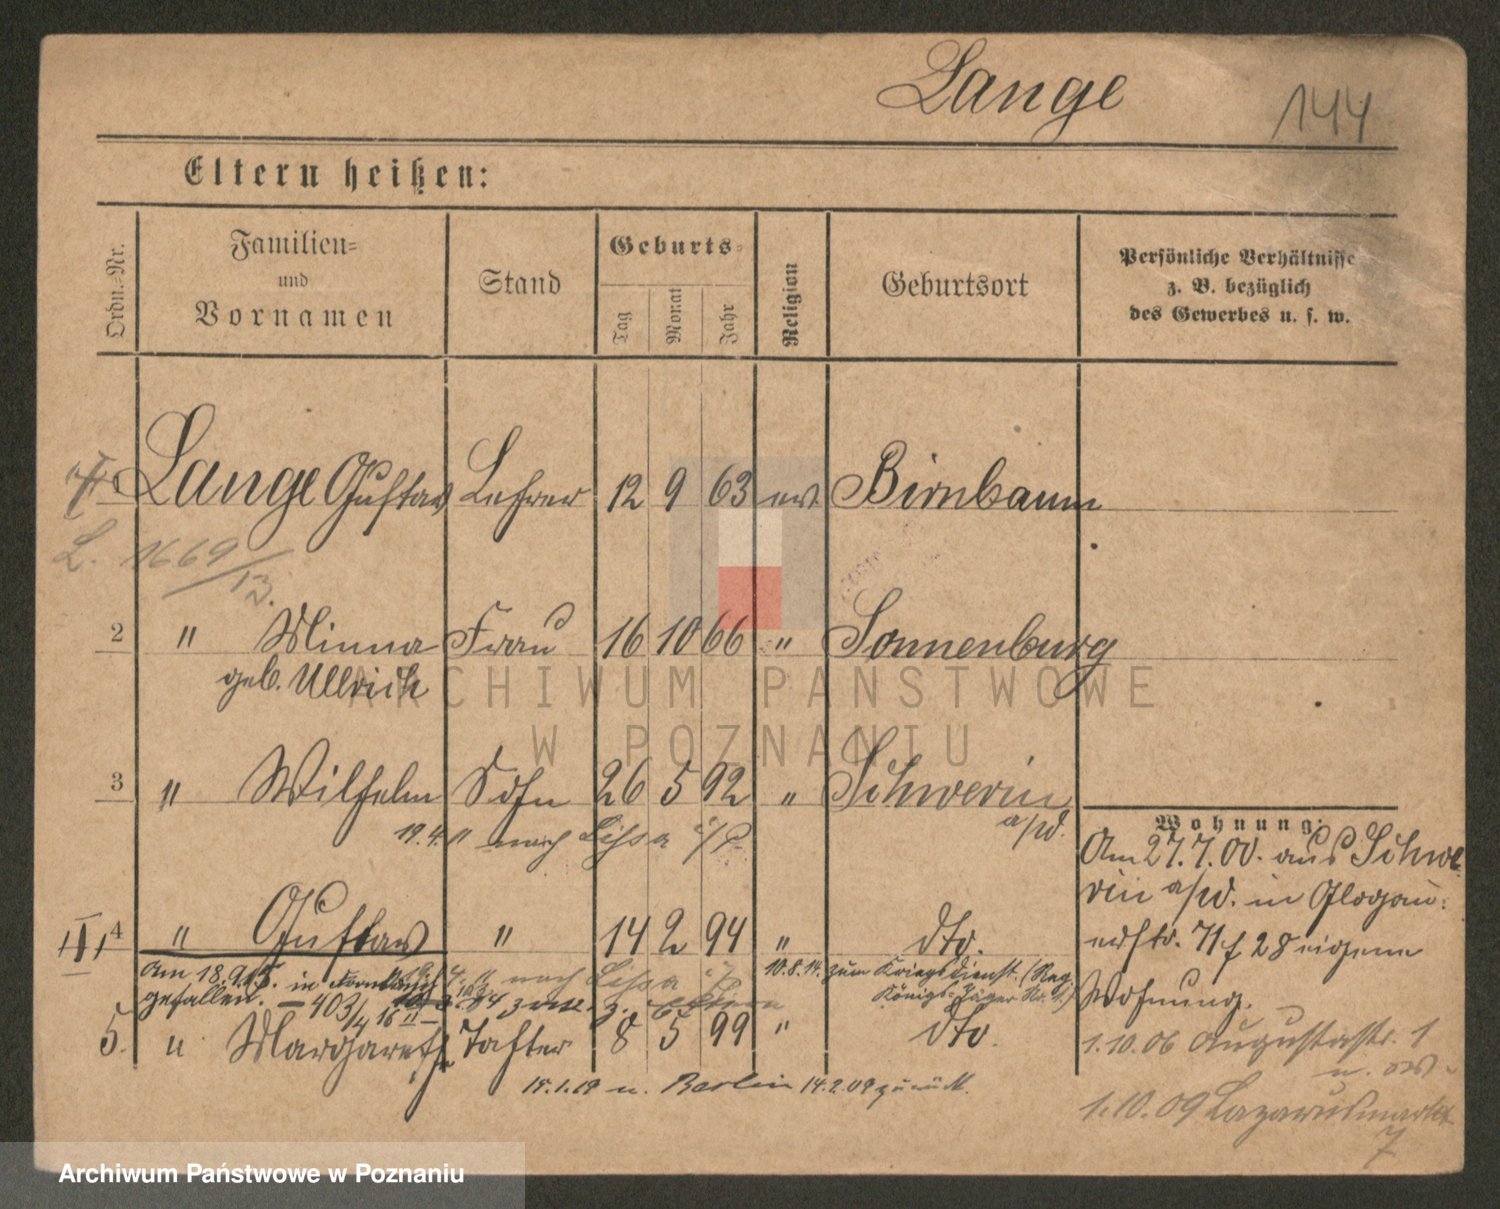 Lange 144
Eltern heißen:
Ordn.-Nr. Familien- und Vornamen Stand Geburts- Tag Monat Jahr Religion Geburtsort Persönliche Verhältnisse z. B. bezüglich des Gewerbes u. s. w.
Lange Gustav Lehrer 12 9 63 ev Birnbaum
L. 1669/13.
2 " Minna Frau 16 10 66 " Sonnenburg
geb. Ullrich
3 " Wilhelm Sohn 26 5 92 " Schwerin
a/W.
19.4. nach Lissa i/P.
4 " Gustav " 14 2 94 " dto.
Am 18.9.15. in
gefallen. – 403/4 16
nach Lissa i/P
10.8.14. zum Kriegsdienst (Reg
Königs-Jäger Nr. 1.)
5. " Margareth Tochter 8 5 99 " dto.
n. Berlin 14.2.09 zurück.
Wohnung:
Am 27.7.00. aus Schwe-
rin a/W. in Glogau-
erstr. 71 f 28 eigene
Wohnung.
1.10.06 Augustastr. 1
1.10.09 Lazarusmarkt
7
ARCHIWUM PAŃSTWOWE
W POZNANIU
Archiwum Państwowe w Poznaniu